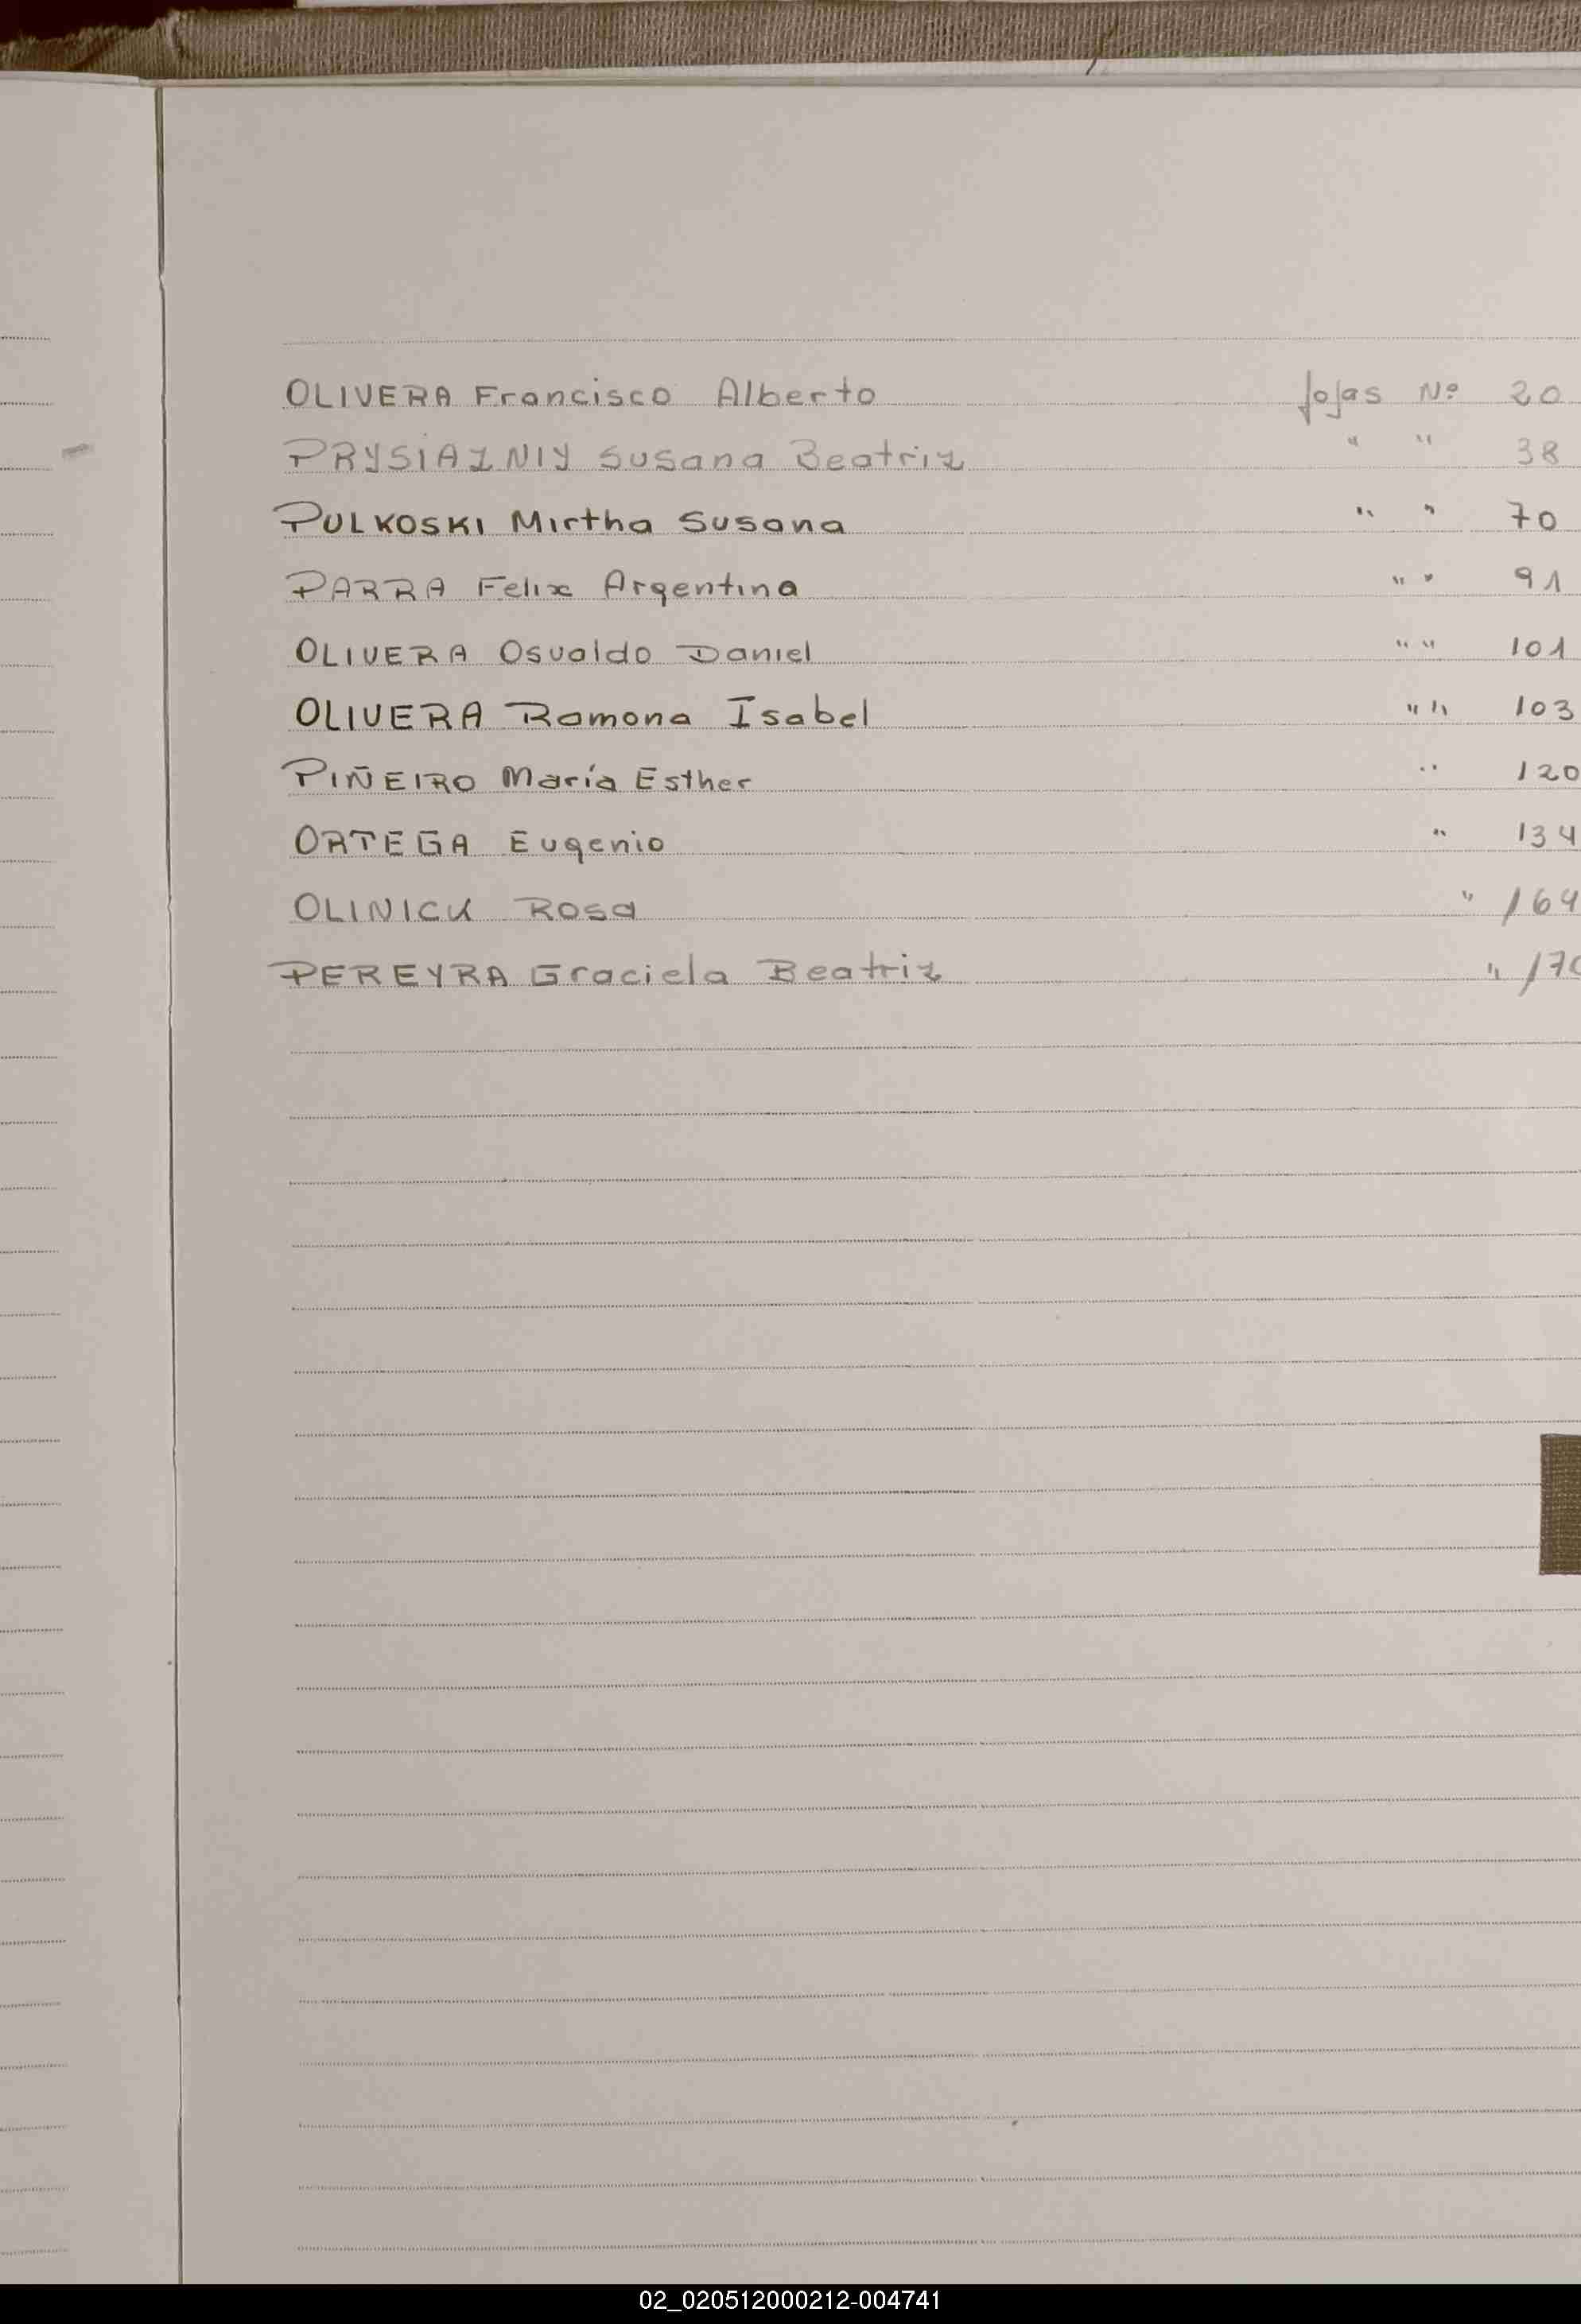 OLIVERA Francisco Alberto fojas Nº 20
PRYSIAZNIY Susana Beatriz " " 38
PULKOSKI Mirtha Susana " " 70
PARRA Felix Argentina " " 91
OLIVERA Osvaldo Daniel " " 101
OLIVERA Ramona Isabel " " 103
PIÑEIRO María Esther " 120
ORTEGA Eugenio " 134
OLINICK Rosa " 169
PEREYRA Graciela Beatriz "
02_020512000212-004741